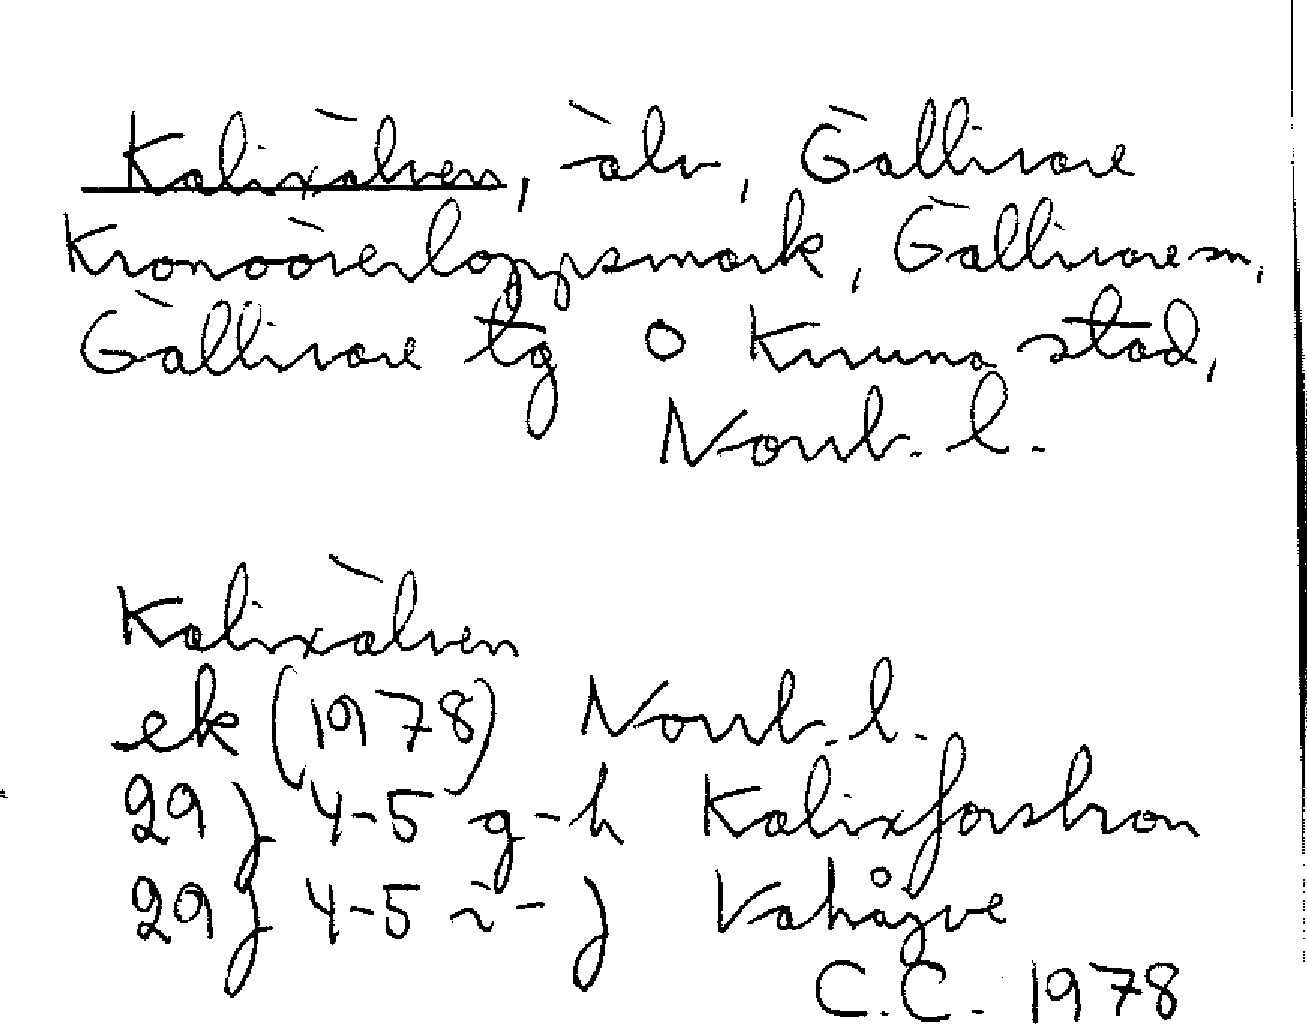 Kalixälven, älv, Gällivare
Kronoöverloppsmark, Gällivare sn,
Gällivare tg o Kiruna stad,
Norrb. l.
Kalixälven
ek (1978) Norrb. l.
29 J 4-5 g-h Kalixforsbron
29 J 4-5 i-j Vahåive
C.C. 1978